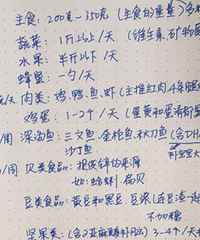 主食：200克-350克（主食白重量）多
蔬菜：1斤以上/天（维生素、矿物
水果：半斤以下/天
蜂蜜：一勺/天
天 肉类：鸡、鸭、鱼、虾（主推红肉4条腿
鸡蛋：1-2个/天（蛋黄和蛋清都
/周 深海鱼：三文鱼、金枪鱼、秋刀鱼（含DHA
沙丁鱼
/周 贝类食品：提供锌的来源
如：蛤蜊、扇贝
豆类食品：黄豆和黑豆、豆浆（连豆渣一起
不加糖
坚果类：（含α亚麻酸补 3-4个/天